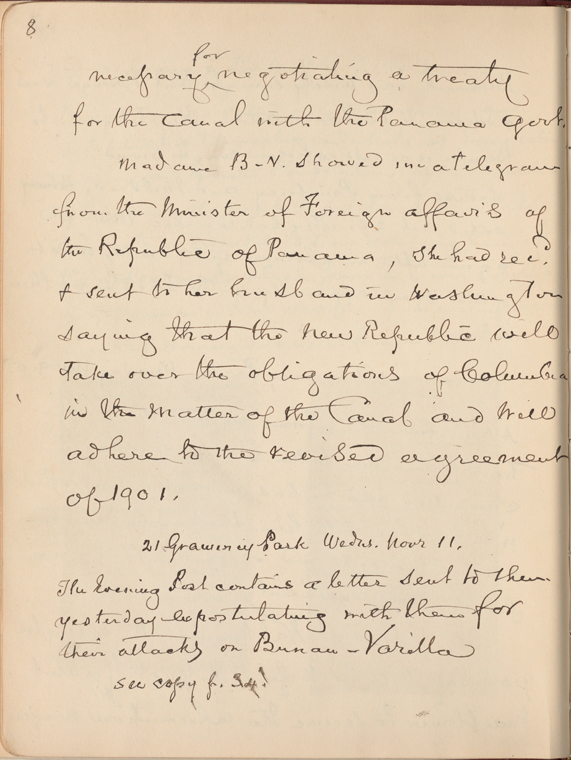 8
for
necessary negotiating a treaty
for the Canal with the Panama Govt.
Madame B-V. showed me a telegram
from the Minister of Foreign affairs of
the Republic of Panama, she had recd.
& sent to her husband in Washington
saying that the new Republic will
take over the obligations of Columbia
in the matter of the Canal and will
adhere to the revised agreement
of 1901.
21 Gramercy Park Weds. Novr 11.
The Evening Post contains a letter sent to them
yesterday expostulating with them for
their attacks on Bunau-Varilla
see copy p. 34